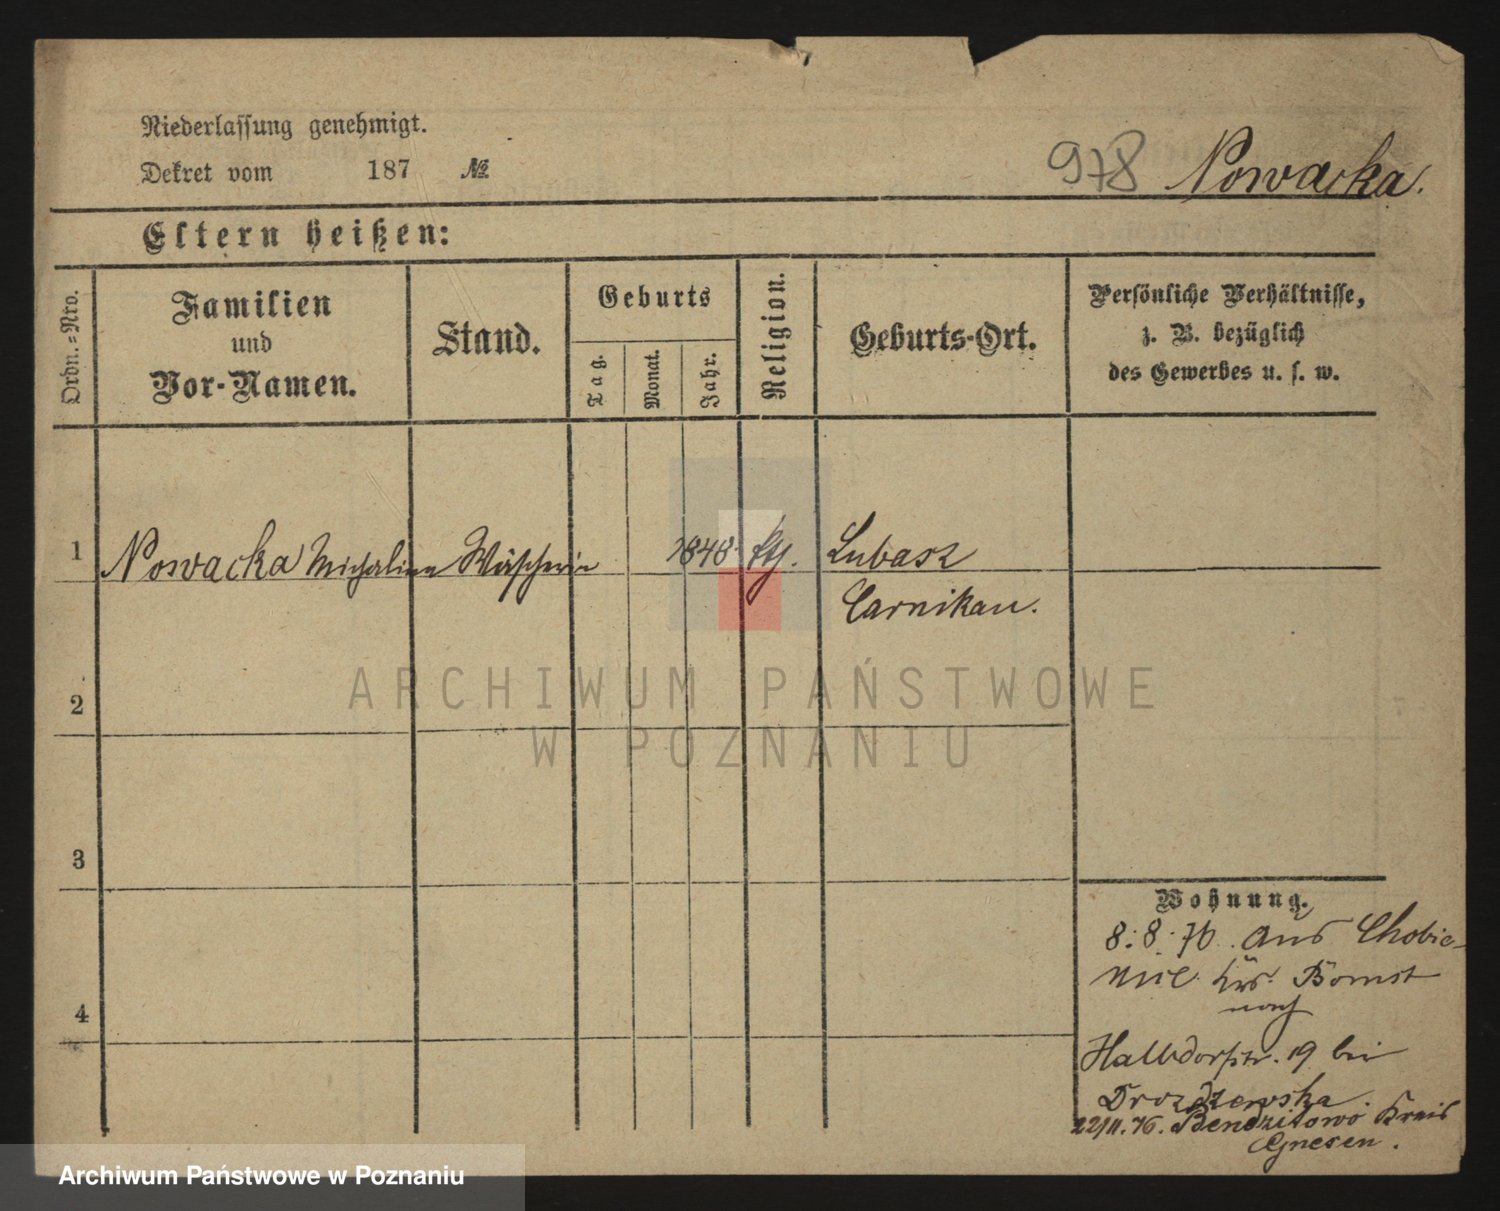 Niederlassung genehmigt.
Dekret vom 187 №
978 Nowacka.
Eltern heißen:
Ordn.=Nro.
Familien
und
Vor-Namen.
Stand.
Geburts
Tag.
Monat.
Jahr.
Religion.
Geburts-Ort.
Persönliche Verhältnisse,
z. B. bezüglich
des Gewerbes u. s. w.
1 Nowacka Michalina Wäscherin 1848 kth. Lubasz
Carnikau.
2
3
4
Wohnung.
8.8.76. aus Chobie-
nice Krs. Bomst
nach
Halbdorfstr. 19 bei
Drozdzewska
22/11.76. Bendzitowo Kreis
Gnesen.
ARCHIWUM PAŃSTWOWE
W POZNANIU
Archiwum Państwowe w Poznaniu